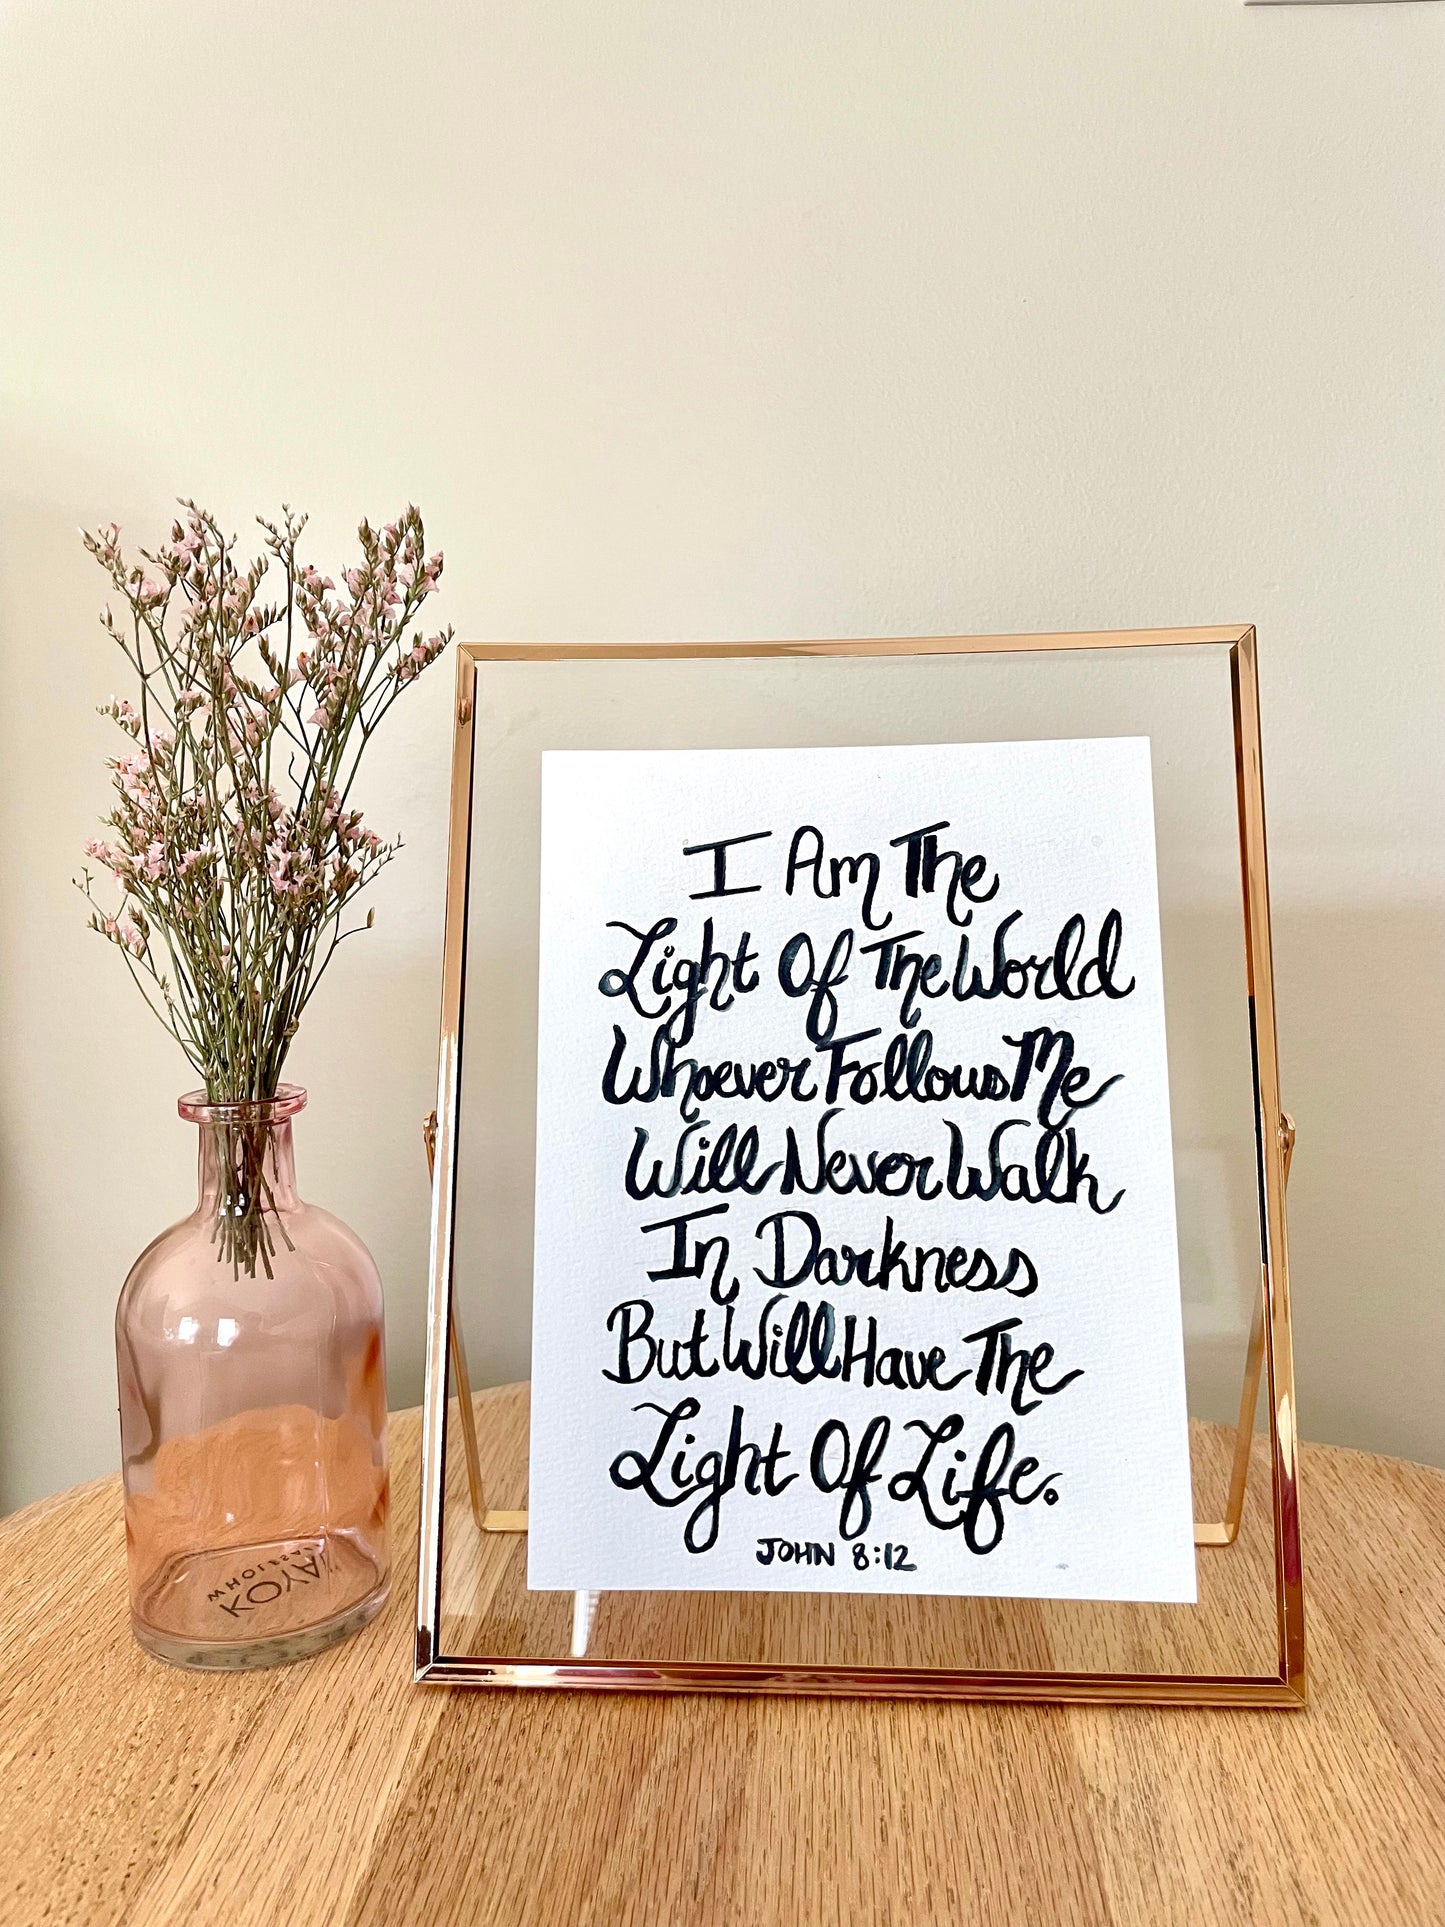 I Am The
Light Of The World
Whoever Follows Me
Will Never Walk
In Darkness
But Will Have The
Light Of Life.
JOHN 8:12
KOYAL
WHOLESALE